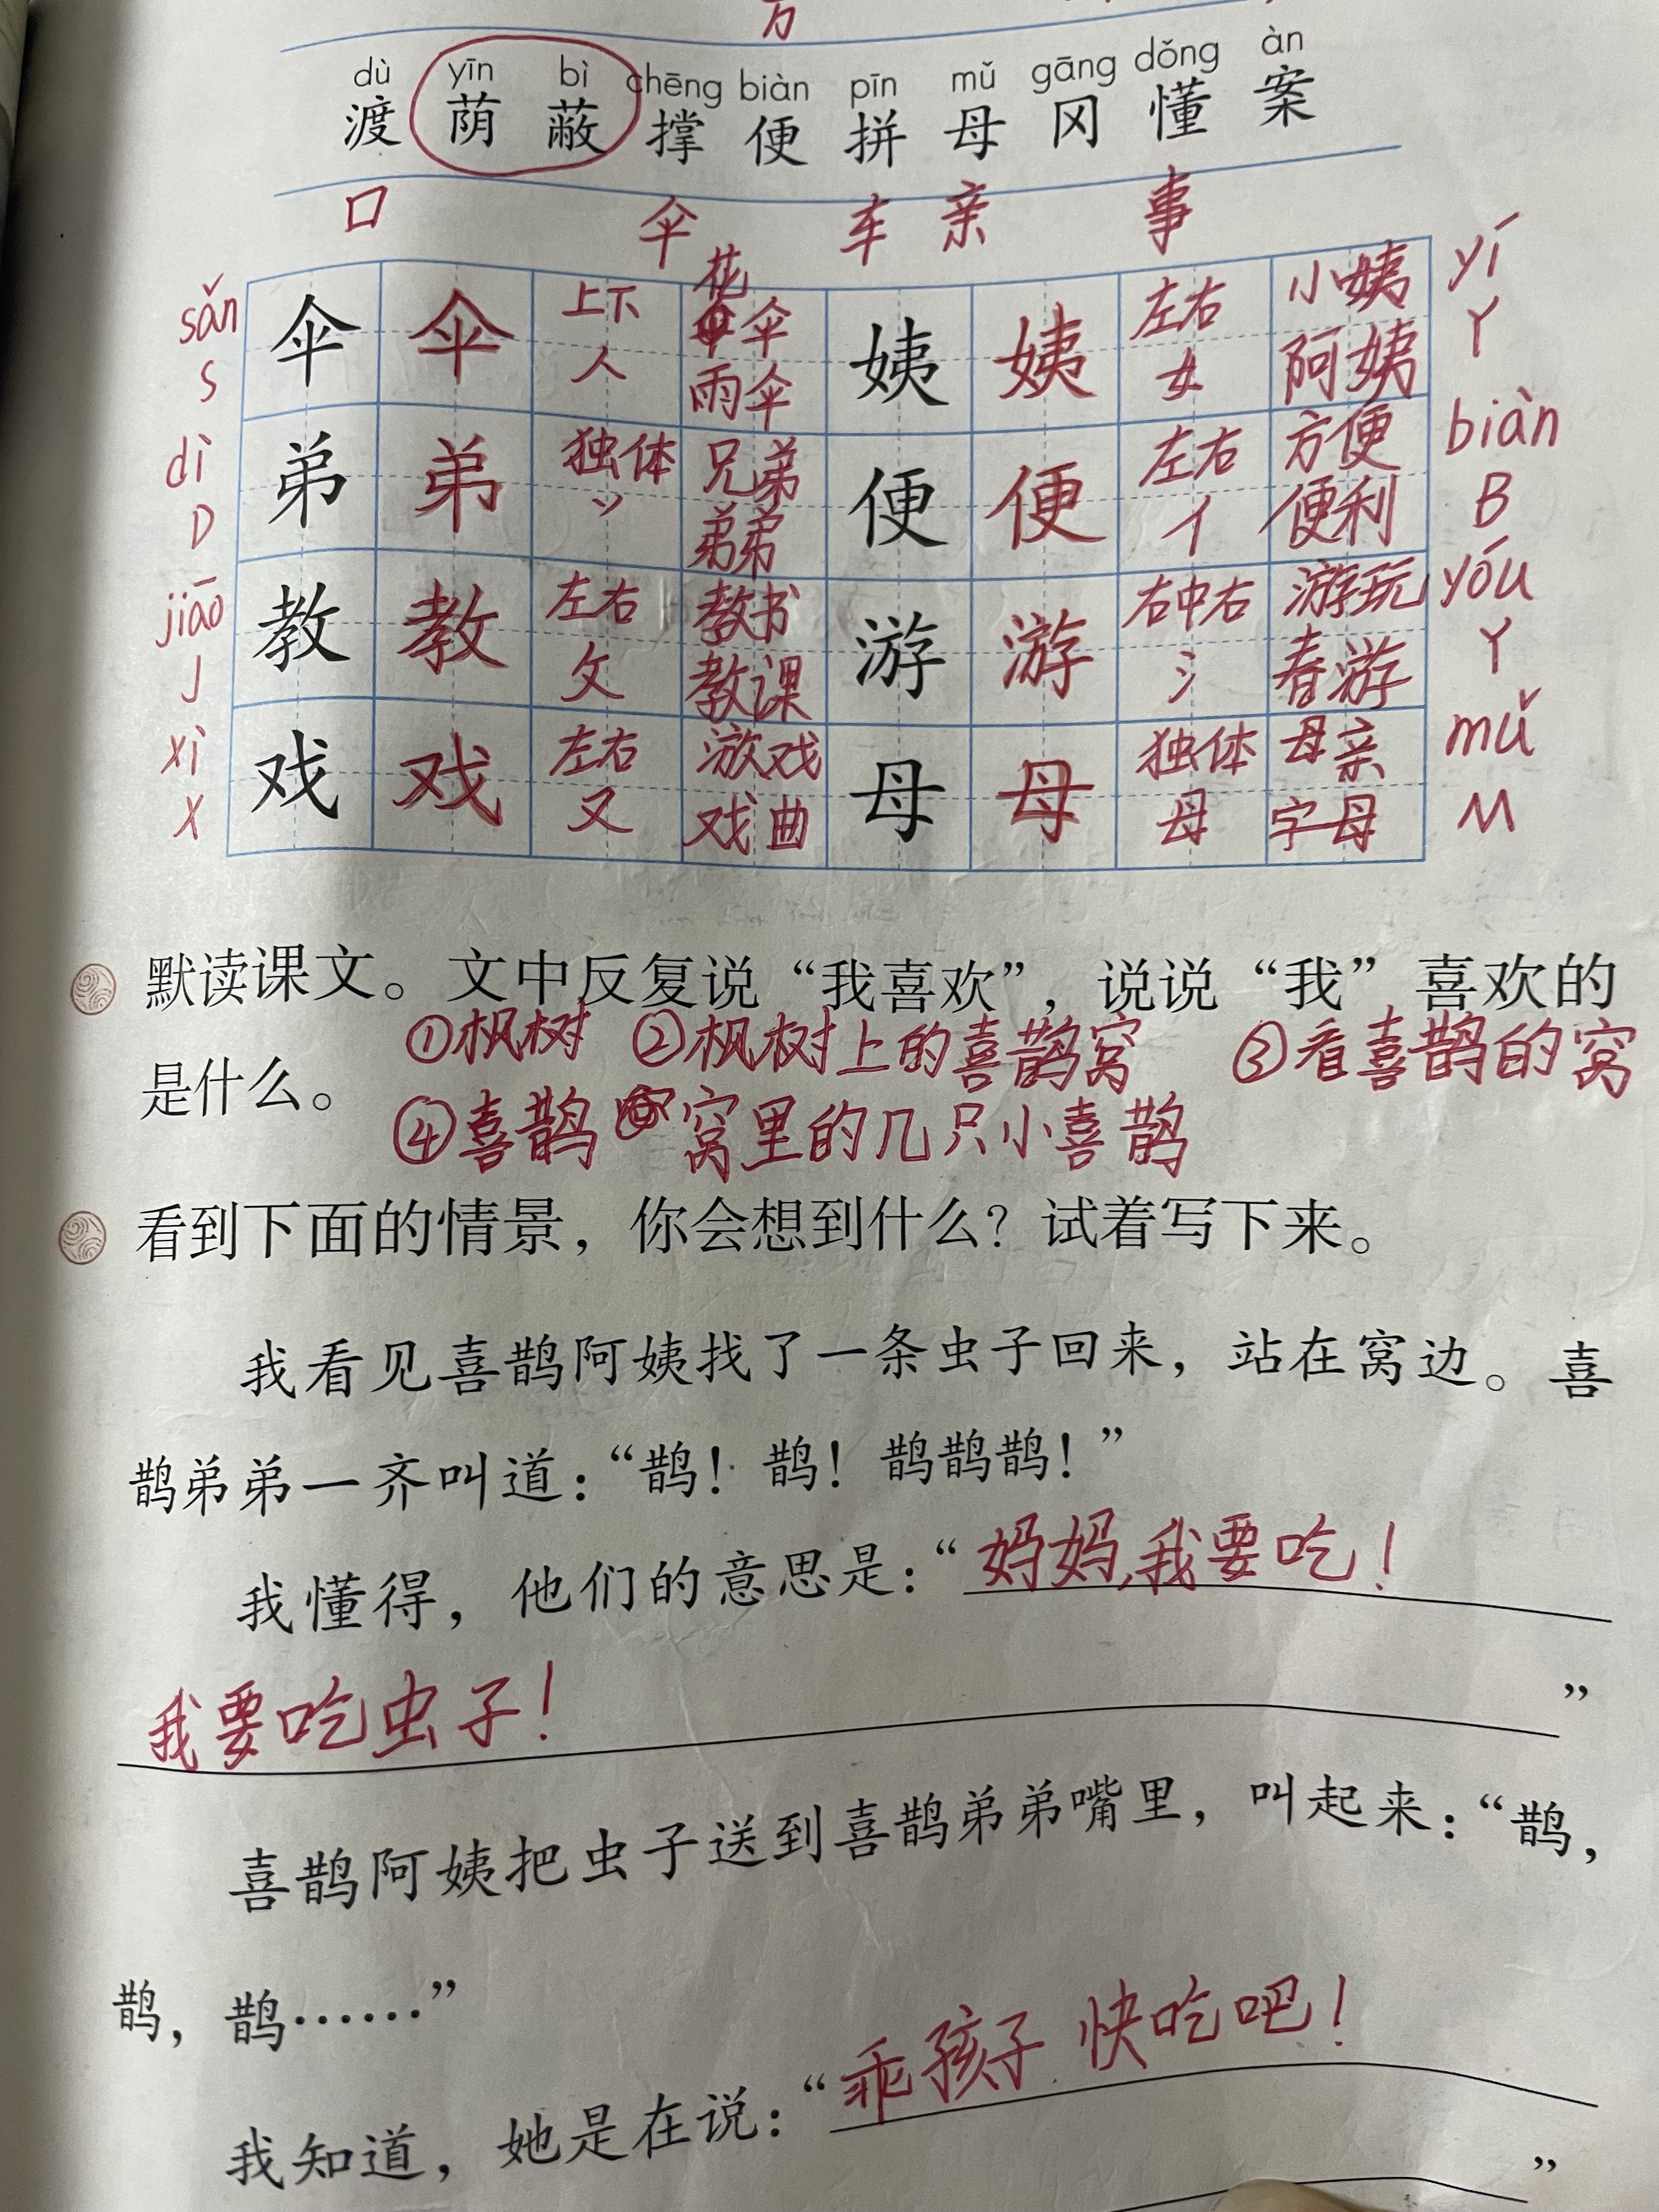 方
dù yīn bì chēng biàn pīn mǔ gāng dǒng àn
渡 荫 蔽 撑 便 拼 母 冈 懂 案
口 伞 车 亲 事
花
sǎn 伞 伞 上下 伞 姨 姨 左右 小姨 yí
S 人 雨伞 女 阿姨 Y
dì 弟 弟 独体 兄弟 便 便 左右 方便 biàn
D 丷 弟弟 亻 便利 B
jiāo 教 教 左右 教书 游 游 右中右 游玩 yóu
J 攵 教课 氵 春游 Y
xì 戏 戏 左右 游戏 母 母 独体 母亲 mǔ
X 又 戏曲 母 字母 M
默读课文。文中反复说“我喜欢”，说说“我”喜欢的
①枫树 ②枫树上的喜鹊窝 ③看喜鹊的窝
是什么。
④喜鹊窝里的几只小喜鹊
看到下面的情景，你会想到什么？试着写下来。
我看见喜鹊阿姨找了一条虫子回来，站在窝边。喜
鹊弟弟一齐叫道：“鹊！鹊！鹊鹊鹊！”
我懂得，他们的意思是：“妈妈,我要吃！
我要吃虫子！”
喜鹊阿姨把虫子送到喜鹊弟弟嘴里，叫起来：“鹊，
鹊，鹊……”
我知道，她是在说：“乖孩子 快吃吧！
”